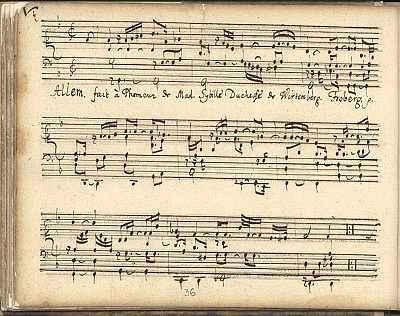 Allem. fait à l'honeur de Mad. Sybille Duchesse de Wirtemberg. Froberg. p.
36